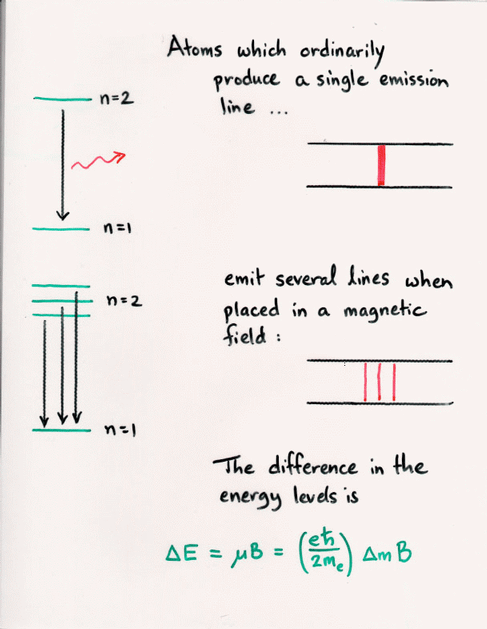 Atoms which ordinarily
produce a single emission
line ...
n=2
n=1
emit several lines when
placed in a magnetic
field :
n=2
n=1
The difference in the
energy levels is
ΔE = μB = (eħ/2mₑ) Δm B